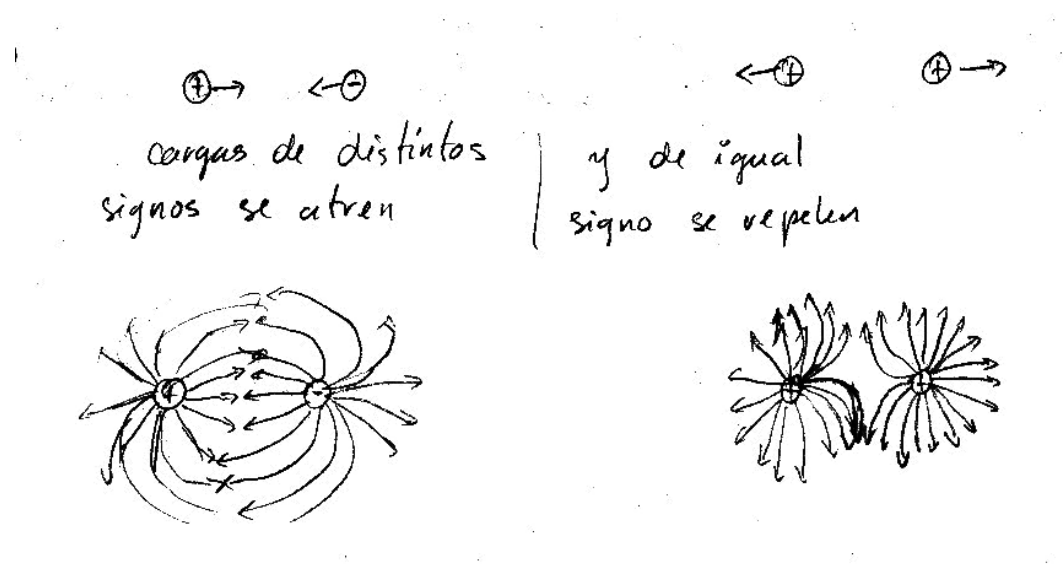 cargas de distintos
signos se atren
y de igual
signo se repelen